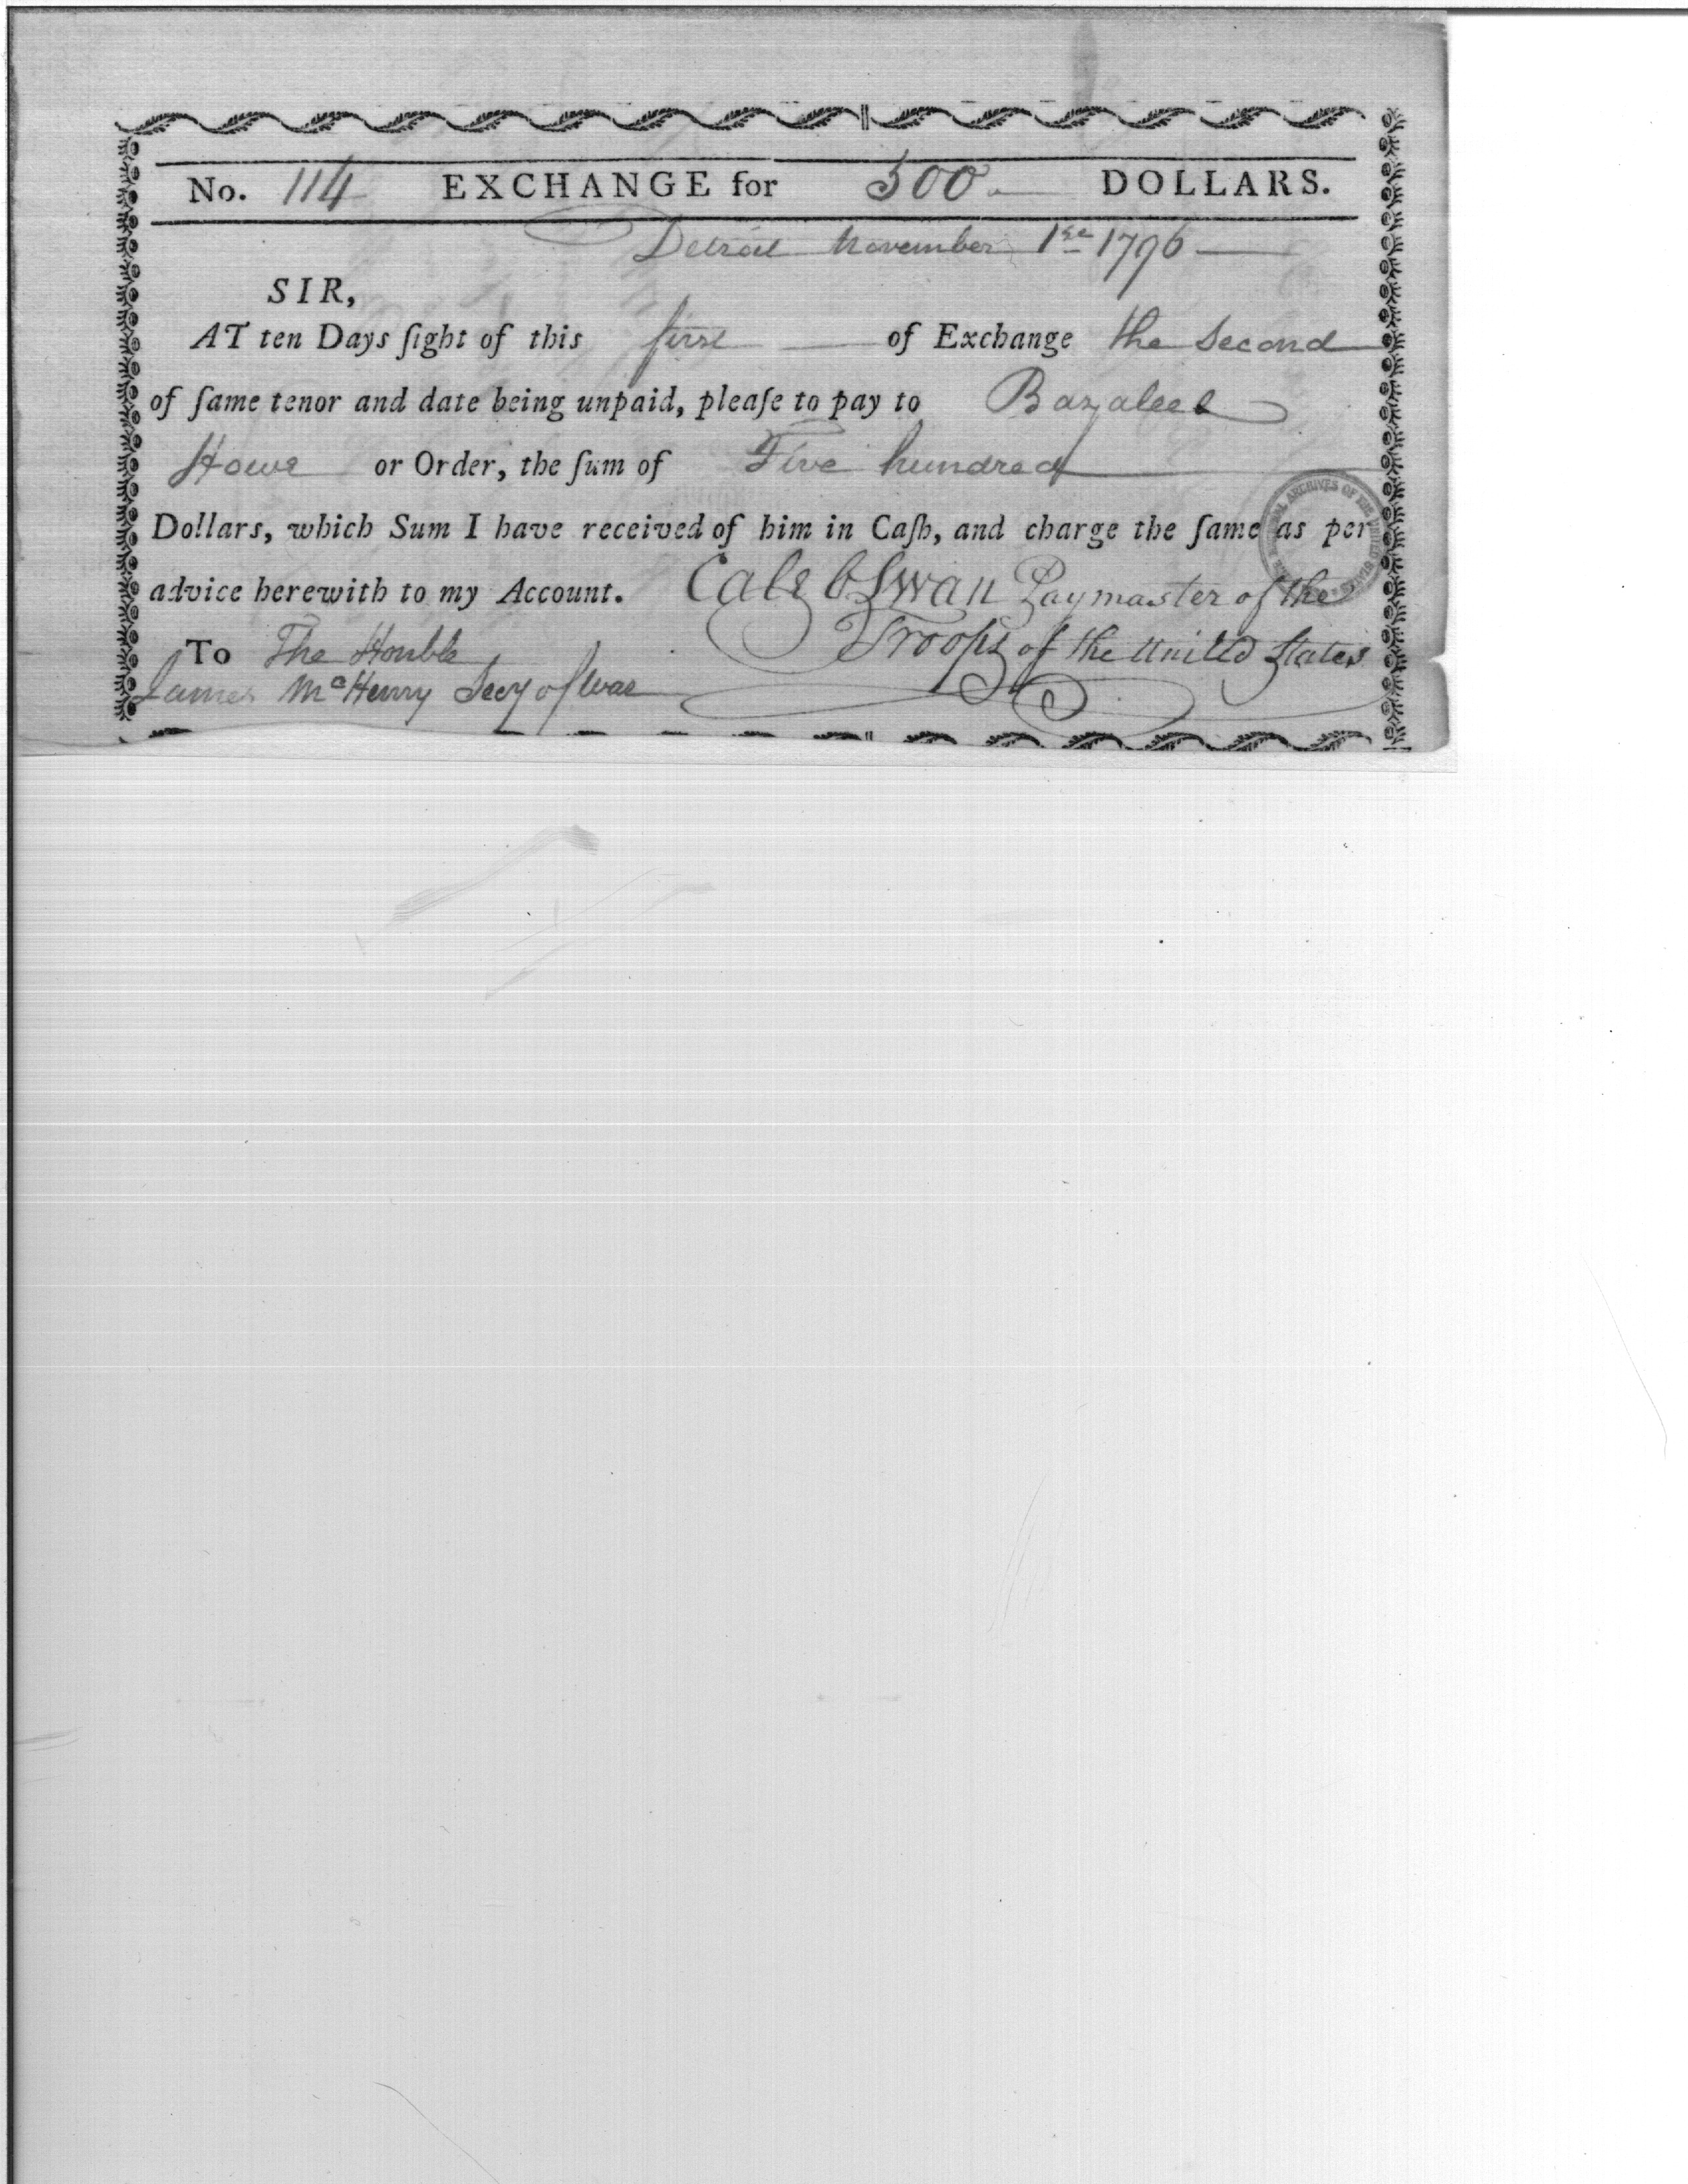 No. 114 EXCHANGE for 500 DOLLARS.
Detroit November 1st 1796
SIR,
AT ten Days ſight of this first of Exchange the Second
of ſame tenor and date being unpaid, pleaſe to pay to Bazaleel
Howe or Order, the ſum of Five hundred
Dollars, which Sum I have received of him in Caſh, and charge the ſame as per
advice herewith to my Account. Caleb Swan Paymaster of the
Troops of the United States
To The Honble
James McHenry Secy of War
ARCHIVES OF THE UNITED STATES